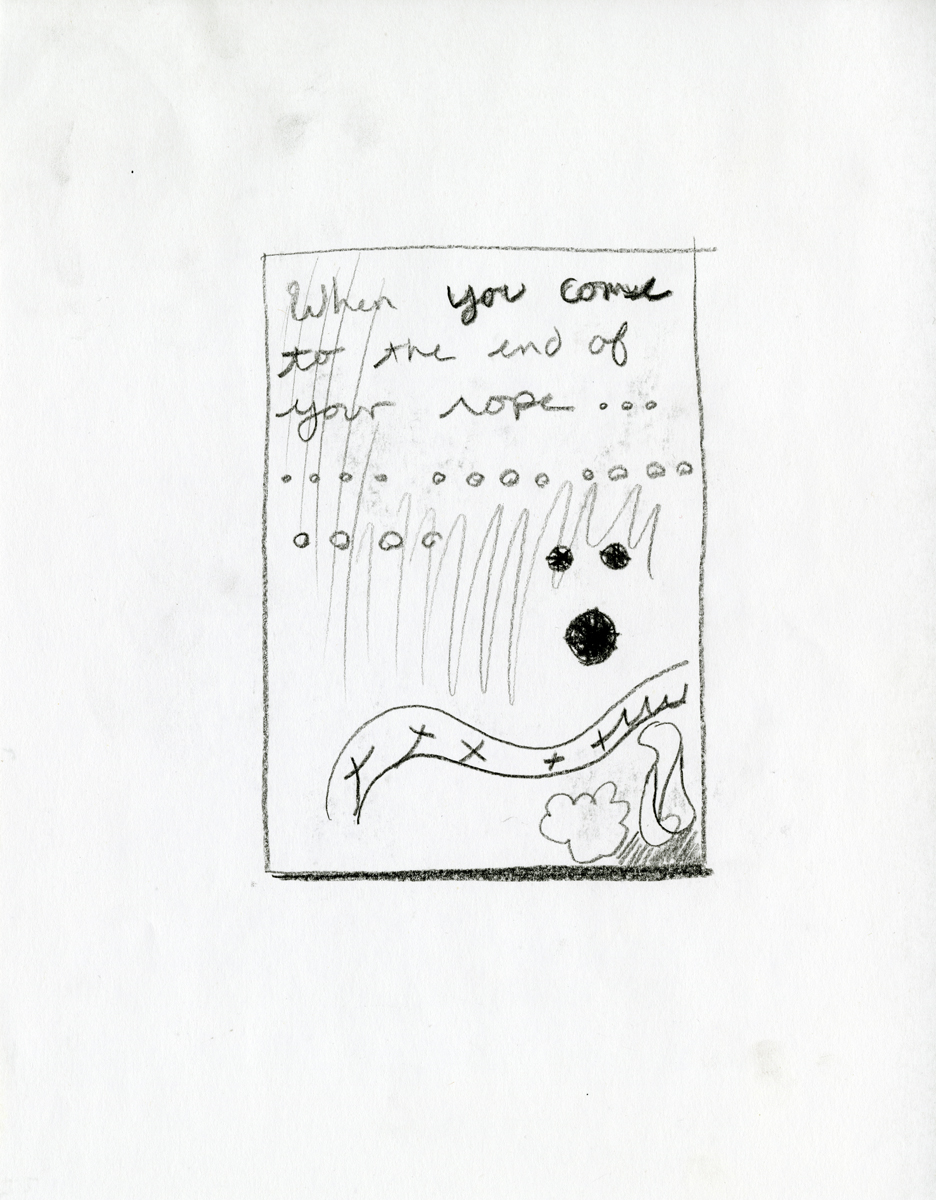 When you come
to the end of
your rope...